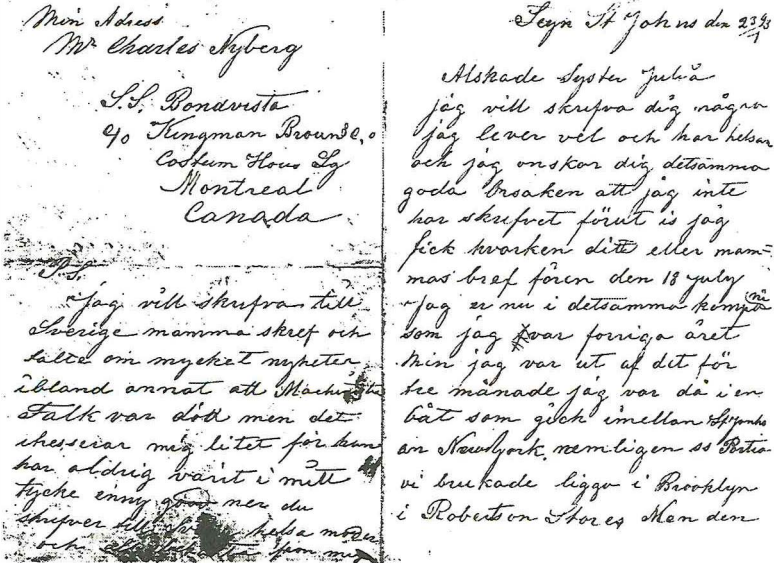 Min Adress
Mr Charles Nyberg
S.S. Bondvista
c/o Kingman Broun & Co
Costum Hous Sq
Montreal
Canada
P.S.
Jag vill skrifva till
Sverige mamma skref och
talte om mycket nyheter
ibland annat att
Falk var död men det
mig litet för han
har aldrig varit i mitt
tycke enny god ner du
skrifver till helsa moder
och från mig
St Johns den 23
Alskade Syster Juliå
jåg vill skrifva dig några
jåg lever vel och har helsan
och jåg onskar dig detsamma
goda Orsaken att jåg inte
har skrifvet förut is jåg
fick hvarken ditt eller mam=
mas bref fören den 18 july
Jag er nu i detsamma kompani
som jåg var forriga året
Min jåg var ut af det för
tre månade jåg var då i en
båt som gick imellan St Johns
an New York, nemligen ss Portia
vi brukade ligga i Brooklyn
i Robertson Stores Men den